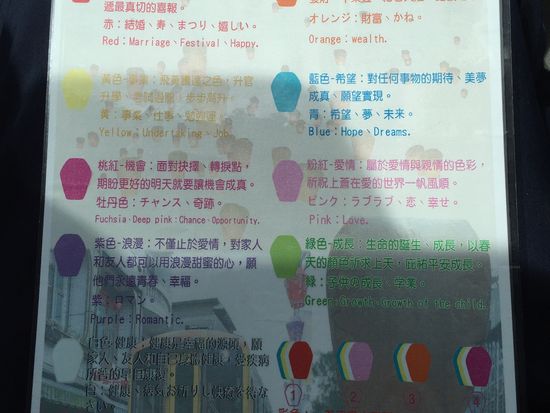 遞最真切的喜報。
赤:結婚、寿、まつり、嬉しい。
Red:Marriage、Festival、Happy.
オレンジ:財富、かね。
Orange:wealth.
黃色-事業:飛黃騰達之色,升官
升學、考試過關,步步高升。
黄:事業、仕事、
Yellow:Undertaking、Job.
藍色-希望:對任何事物的期待、美夢
成真、願望實現。
青:希望、夢、未来。
Blue:Hope、Dreams.
桃紅-機會:面對抉擇、轉捩點,
期盼更好的明天就要讓機會成真。
牡丹色:チャンス、奇跡。
Fuchsia、Deep pink:Chance、Opportunity.
粉紅-愛情:屬於愛情與親情的色彩,
祈祝上蒼在愛的世界一帆風順。
ピンク:ラブラブ、恋、幸せ。
Pink:Love.
紫色-浪漫:不僅止於愛情,對家人
和友人都可以用浪漫甜蜜的心,願
他們永遠青春、幸福。
紫:ロマン。
Purple:Romantic.
綠色-成長:生命的誕生、成長,以春
天的顏色祈求上天,庇祐平安成長。
緑:子供の成長、学業。
Green:Growth、Growth of the child.
白色-健康:健康是幸福的源頭,願
家人、友人和自己身體健康,受疾病
所苦的早日康復。
白:健康、病気お祈りし快癒を待な
さい。
① ② ③ ④